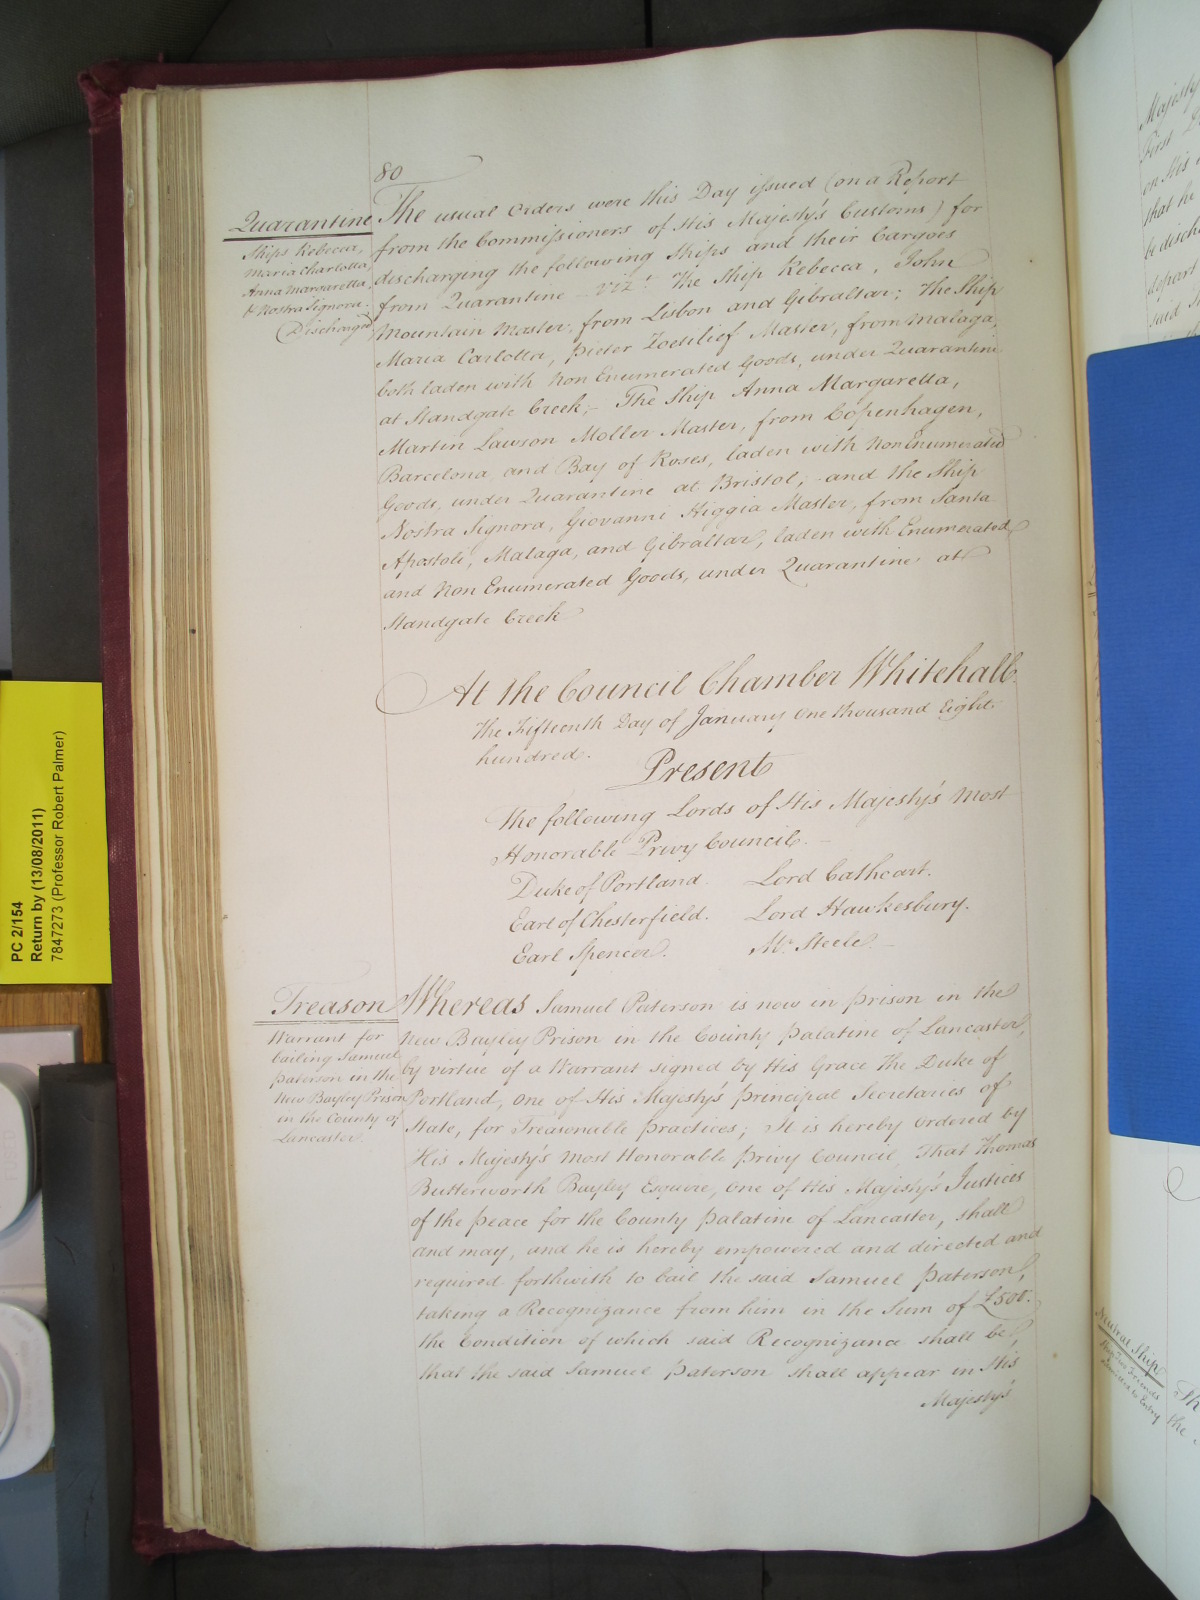 80
Quarantine
Ships Rebecca,
Maria Charlotta,
Anna Margaretta,
& Nostra Signora.
Discharged
The usual Orders were this Day issued (on a Report
from the Commissioners of His Majesty's Customs) for
discharging the following Ships and their Cargoes
from Quarantine – Vizt. The Ship Rebecca, John
Mountain Master, from Lisbon and Gibraltar; The Ship
Maria Carlotta, Pieter Master, from Malaga,
both laden with Non Enumerated Goods, under Quarantine
at Standgate Creek;– The Ship Anna Margaretta,
Martin Lawson Moller Master, from Copenhagen,
Barcelona, and Bay of Roses, laden with Non Enumerated
Goods, under Quarantine at Bristol; – and the Ship
Nostra Signora, Giovanni Higgia Master, from Santa
Apostoli, Malaga, and Gibraltar, laden with Enumerated
and Non Enumerated Goods, under Quarantine at
Standgate Creek
At the Council Chamber Whitehall.
The Fifteenth Day of January One thousand Eight
hundred.
Present
The following Lords of His Majesty's Most
Honorable Privy Council. –
Duke of Portland. Lord Cathcart.
Earl of Chesterfield. Lord Hawkesbury.
Earl Spencer. Mr. Steele. –
Treason
Warrant for
bailing Samuel
Paterson in the
New Bayley Prison
in the County of
Lancaster.
Whereas Samuel Paterson is now in prison in the
New Bayley Prison in the County Palatine of Lancaster,
by virtue of a Warrant signed by His Grace The Duke of
Portland, One of His Majesty's Principal Secretaries of
State, for Treasonable Practices; It is hereby Ordered by
His Majesty's Most Honorable Privy Council, That Thomas
Butterworth Bayley Esquire, One of His Majesty's Justices
of the Peace for the County Palatine of Lancaster, shall
and may, and he is hereby empowered and directed and
required forthwith to bail the said Samuel Paterson,
taking a Recognizance from him in the Sum of £500.
the Condition of which said Recognizance shall be,
that the said Samuel Paterson shall appear in His
Majesty's
PC 2/154
Return by (13/08/2011)
7847273 (Professor Robert Palmer)
Majesty
First
on His
that he
be disch
depart
said
Neutral Ship